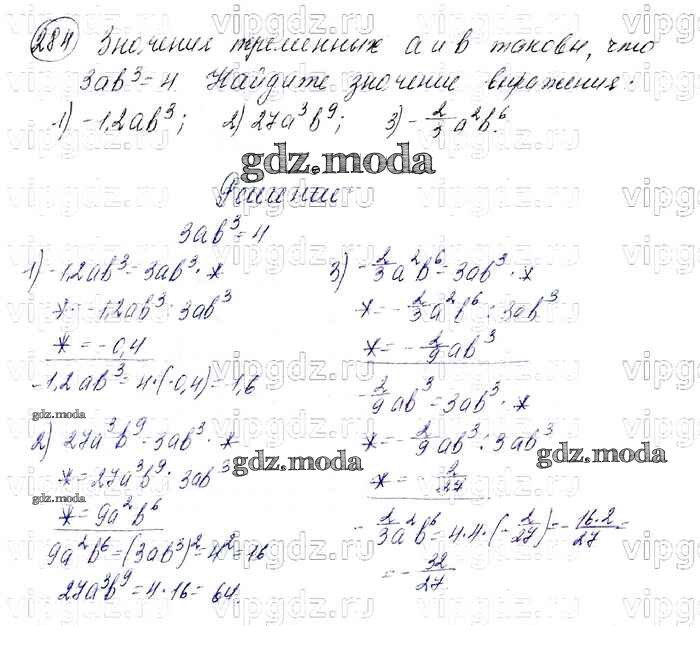 284 Значения переменных a и b таковы, что
3ab³ = 4 Найдите значение выражения:
1) -1,2ab³; 2) 27a³b⁹; 3) -2/3a²b⁶.
gdz.moda
Решение
3ab³ = 4
1) -1,2ab³ = 3ab³ · *
* = -1,2ab³ : 3ab³
* = -0,4
-1,2ab³ = 4 · (-0,4) = -1,6
gdz.moda
2) 27a³b⁹ = 3ab³ · *
* = 27a³b⁹ : 3ab³
gdz.moda
* = 9a²b⁶
9a²b⁶ = (3ab³)² = 4² = 16
27a³b⁹ = 4 · 16 = 64.
3) -2/3a²b⁶ = 3ab³ · *
* = -2/3a²b⁶ : 3ab³
* = -2/9ab³
-2/9ab³ = 3ab³ · *
* = -2/9ab³ : 3ab³
gdz.moda
gdz.moda
* = -2/27
-2/3a²b⁶ = 4 · 4 · (-2/27) = -16·2/27 =
= -32/27.
vipgdz.ru